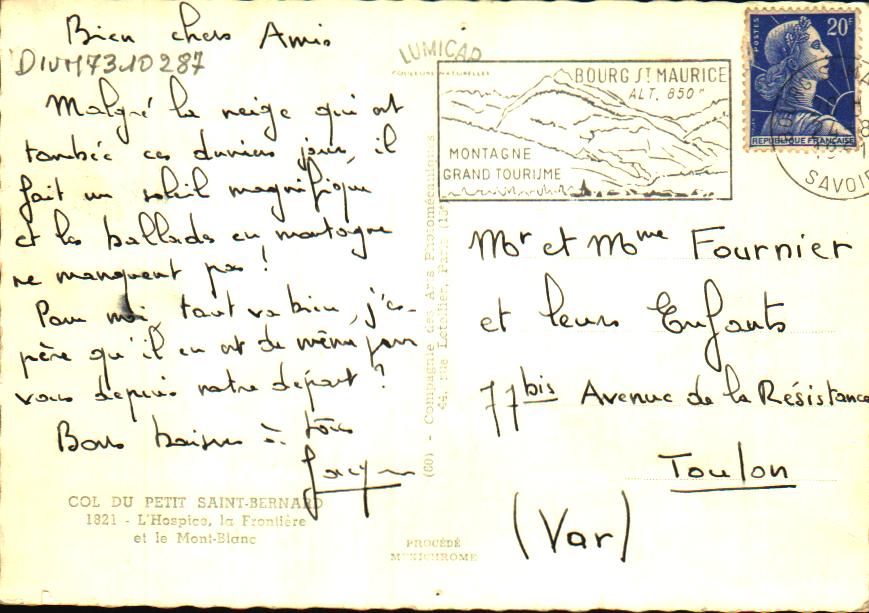 Bien chers Amis
DIVM7310287
Malgré la neige qui est
tombée ces derniers jours, il
fait un soleil magnifique
et les ballades en montagne
ne manquent pas !
Pour moi, tout va bien, j'es-
père qu'il en est de même pour
vous depuis notre départ ?
Bons baisers à tous
COL DU PETIT SAINT-BERNARD
1821 - L'Hospice, la Frontière
et le Mont-Blanc
LUMICAP
COULEURS NATURELLES
(60) - Compagnie des Arts Photomécaniques
44, rue Letellier, Paris (15e)
PROCÉDÉ
MEXICHROME
BOURG ST MAURICE
ALT. 850 m
MONTAGNE
GRAND TOURISME
POSTES
20F
REPUBLIQUE FRANÇAISE
SAVOIE
Mr et Mme Fournier
et leurs Enfants
77 bis Avenue de la Résistance
Toulon
(Var)